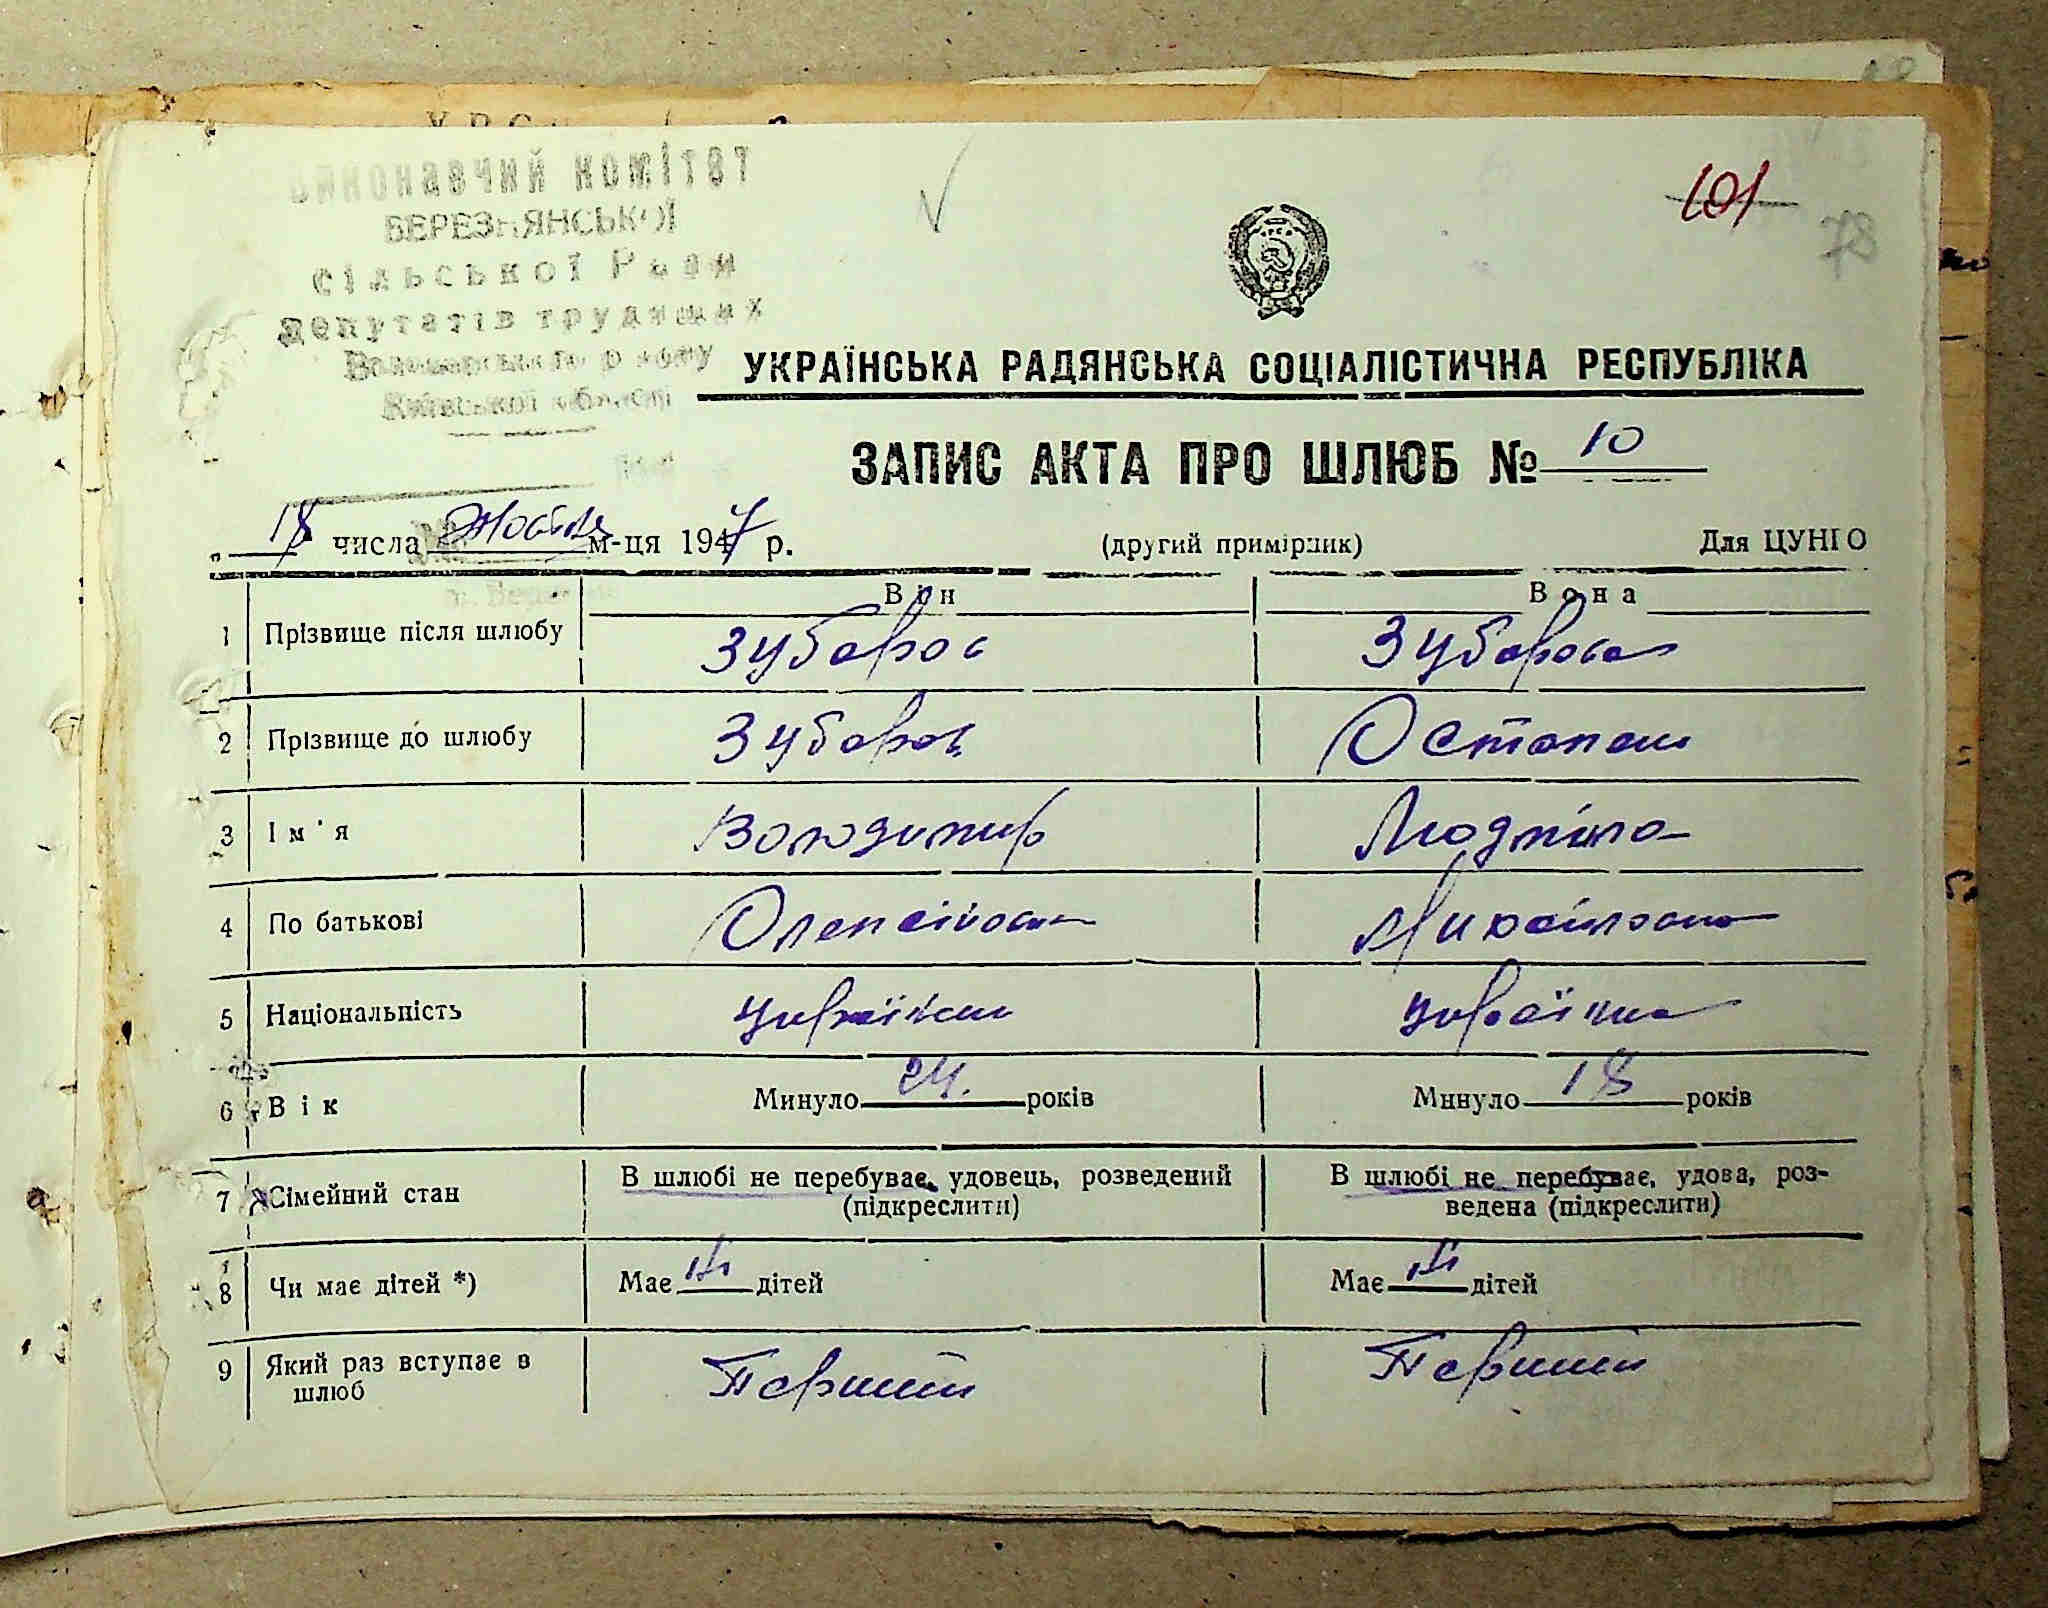 Виконавчий комітет
БЕРЕЗНЯНСЬКОЇ
сільської Ради
депутатів трудящих
району
Київської області
101
78
УКРАЇНСЬКА РАДЯНСЬКА СОЦІАЛІСТИЧНА РЕСПУБЛІКА
ЗАПИС АКТА ПРО ШЛЮБ № 10
„18 числа Жовтня м-ця 1947 р. (другий примірник) Для ЦУНГО
Він Вона
1 Прізвище після шлюбу Зубаров Зубарова
2 Прізвище до шлюбу Зубаров Остапец
3 Ім'я Володимир Людмила
4 По батькові Олексійович Михайловна
5 Національність Українец Українка
6 Вік Минуло 24. років Минуло 18 років
7 Сімейний стан В шлюбі не перебуває, удовець, розведений В шлюбі не перебуває, удова, роз-
(підкреслити) ведена (підкреслити)
8 Чи має дітей *) Має ні дітей Має ні дітей
9 Який раз вступає в Перший Перший
шлюб